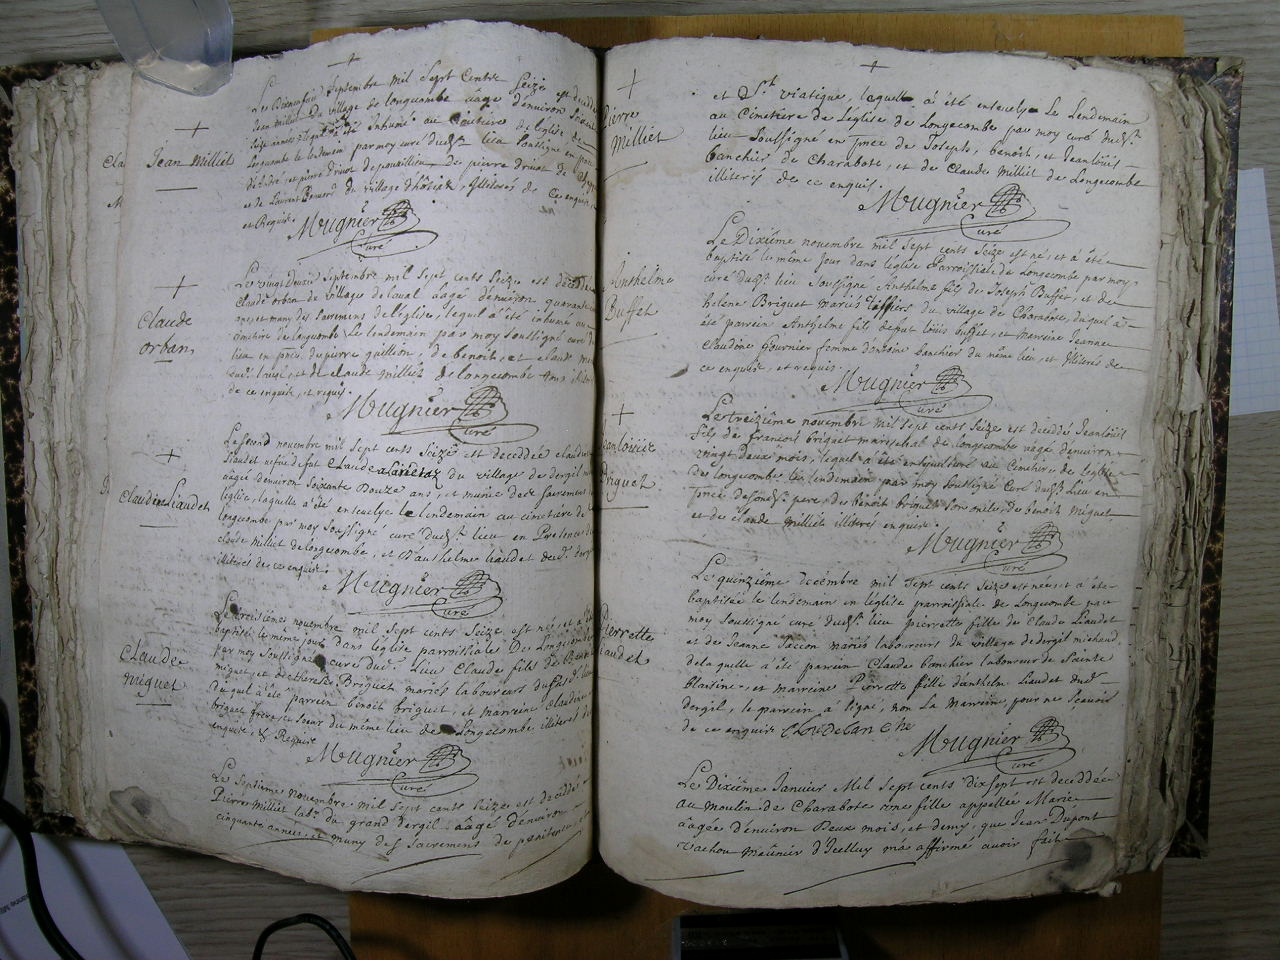 Jean Milliet
Septembre mil Sept Cents Seize est decedde
Jean milliet du village de longecombe aagé d'environ
inhumé au Cimetiere de l'Eglise de
Longecombe le lendemain par moy curé dud.t lieu Soussigné en
et pierre Druot de pierre druot de
et de Laurent du village d'hostel Illiterés de ce enquis
et Requis.
Mugnier
Curé
Claude
Orban
Le vingt Septembre mil Sept cents Seize est decedde
Claude orban du village de laval aagé denviron quarante
ans, et muny des Sacremens de l'eglise, lequel a été inhumé au
Cimetiere de longecombe le lendemain par moy soussigné curé du
lieu en pnce de pierre guillion, de benoit, et claude
et de claude milliet de longecombe
de ce enquis, et requis.
Mugnier
Curé
Claudine Liaudet
Le Second novembre mil Sept cents Seize est deceddée claudine
Liaudet vefue de fut Claude du village de dergil
aagée denviron Soixante Douze ans, et munie des Sacremens
leglise, laquelle a été ensevelye le lendemain au cimetiere de
Longecombe par moy Soussigné curé dud.t lieu en Presence de
claude Milliet de longecombe, et d'anthelme liaudet
illiterés de ce enquis.
Mugnier
Curé
Claude
miguet
Le troisiéme novembre mil Sept cents Seize est né, et a été
baptisé le méme jour dans leglise parroissiale de Longecombe
par moy Soussigné curé dud.t lieu Claude fils de Benoit
miguet, et de Therese Briguet mariés laboureurs dud.t lieu
duquel a été parrein benoit briguet, et marreine claudine
briguet frere, et Soeur du méme lieu de Longecombe illiteres de
enquis, et Requis
Mugnier
Curé
Le Septiéme novembre mil Sept cents Seize est decédé
Pierre Milliet lab.r du grand dergil aagé denviron
cinquante années, et muny des Sacremens de penitence,
Pierre
Milliet
et S.t viatique, lequel a été ensevely Le Lendemain
au Cimetiere de Leglise de Longecombe par moy curé dud.t
lieu Soussigné en pnce de Joseph, benoit, et Jeanlouis
banchier de Charabote, et de Claude Milliet de Longecombe
illiterés de ce enquis.
Mugnier
Curé
Anthelme
Buffet
Le Dixiéme novembre mil Sept cents Seize est né, et a été
baptisé le méme jour dans leglise Parroissiale de Longecombe par moy
curé dud.t lieu Soussigné Anthelme fils de Joseph Buffet, et de
helene Briguet mariés du village de Charabote, duquel a
été parrein Anthelme fils de fut louis buffet, et Marreine Jeanne
Claudine Gournier femme d'antoine banchier du méme lieu, et Illiterés de
ce enquis, et requis.
Mugnier
Curé
Jeanlouis
Briguet
Le treiziéme novembre mil Sept cents Seize est decédé Jeanlouis
fils de francois briguet marechal de longecombe aagé denviron
vingt deux mois, lequel a été au Cimetiere de leglise
de longecombe le lendemain par moy Soussigné curé dud.t lieu en
pnce de sond.t pere, de benoit briguet son oncle, de benoit Miguet,
et de claude milliet illiteres enquis.
Mugnier
Curé
Pierrette
Liaudet
Le quinziéme decémbre mil Sept cents Seize est née, et a été
baptisée le lendemain en leglise parroissiale de Longecombe par
moy Soussigné curé dud.t lieu pierrette fille de Claude Liaudet
et de Jeanne Jaccon mariés laboureurs du village de dergil michaud,
de laquelle a été parrein Claude banchier laboureur de Sainte
blaisine, et marreine Pierrette fille d'anthelme Liaudet dud.t
dergil, le parrein a signé, non La Marreine, pour ne Scavoir
de ce enquise Cloude banche
Mugnier
Curé
Le Dixiéme Janvier Mil Sept cents Dixsept est deceddée
au moulin de Charabote une fille appellée Marie
aagée d'environ Deux mois, et demy, que Jean Dupont
Vachou meunier d'Icelluy m'a affirmé avoir fait